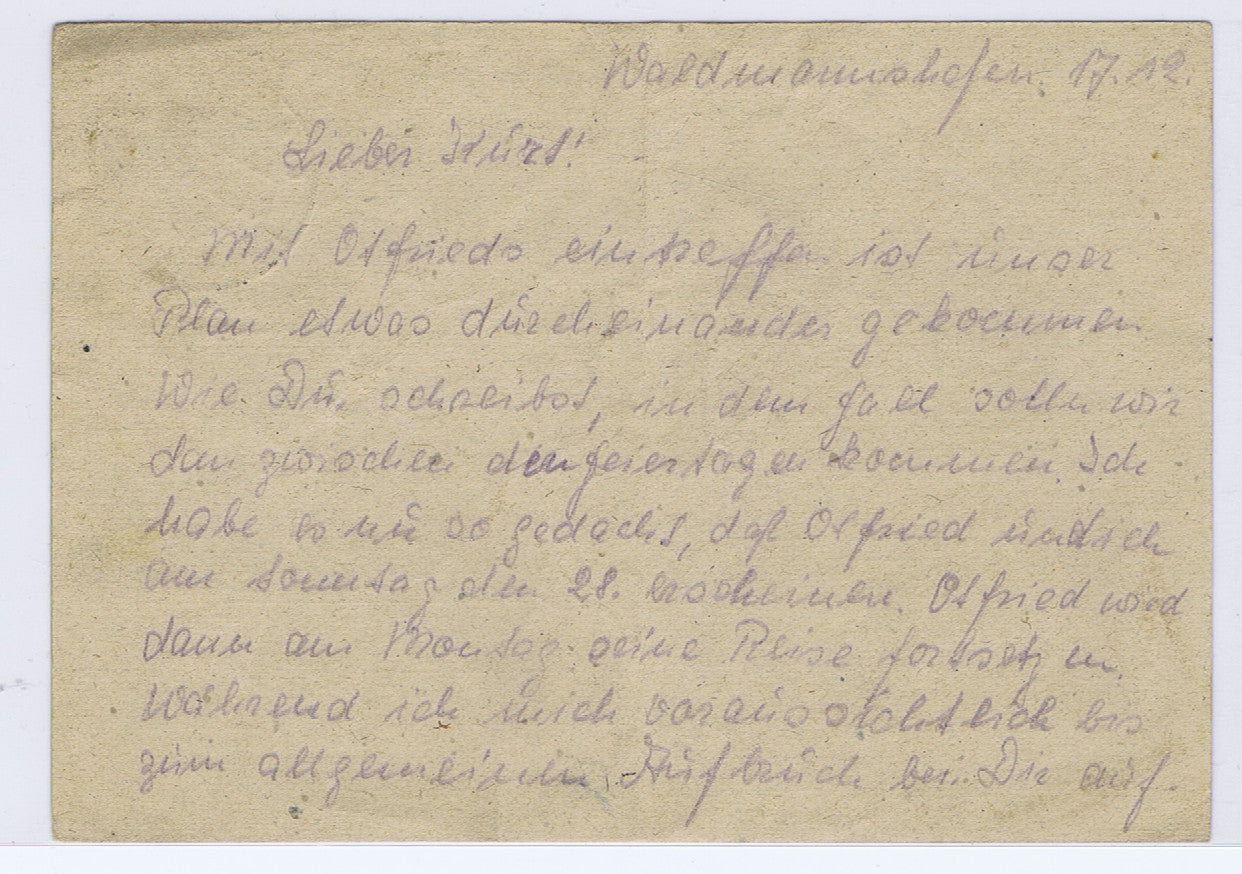 Waldmannshofen. 17.12.
Lieber Kurt!
Mit Otfrieds eintreffen ist unser
Plan etwas durcheinander gekommen
Wie Du, schreibst, in dem Fall solln wir
dan zwischen den feiertagen kommen. Ich
habe es nu so gedacht, daß Otfried und ich
am Sonntag den 28. erscheinen. Otfried wird
dann am Montag seine Reise fortsetzen,
Während ich mich voraussichtlich bis
zum allgemeinen Aufbruch bei Dir auf-